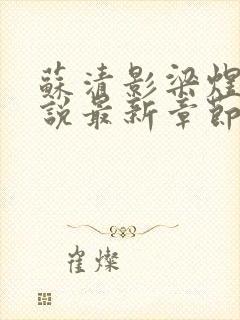 蘇清影梁煜
說最新章節
崔燦